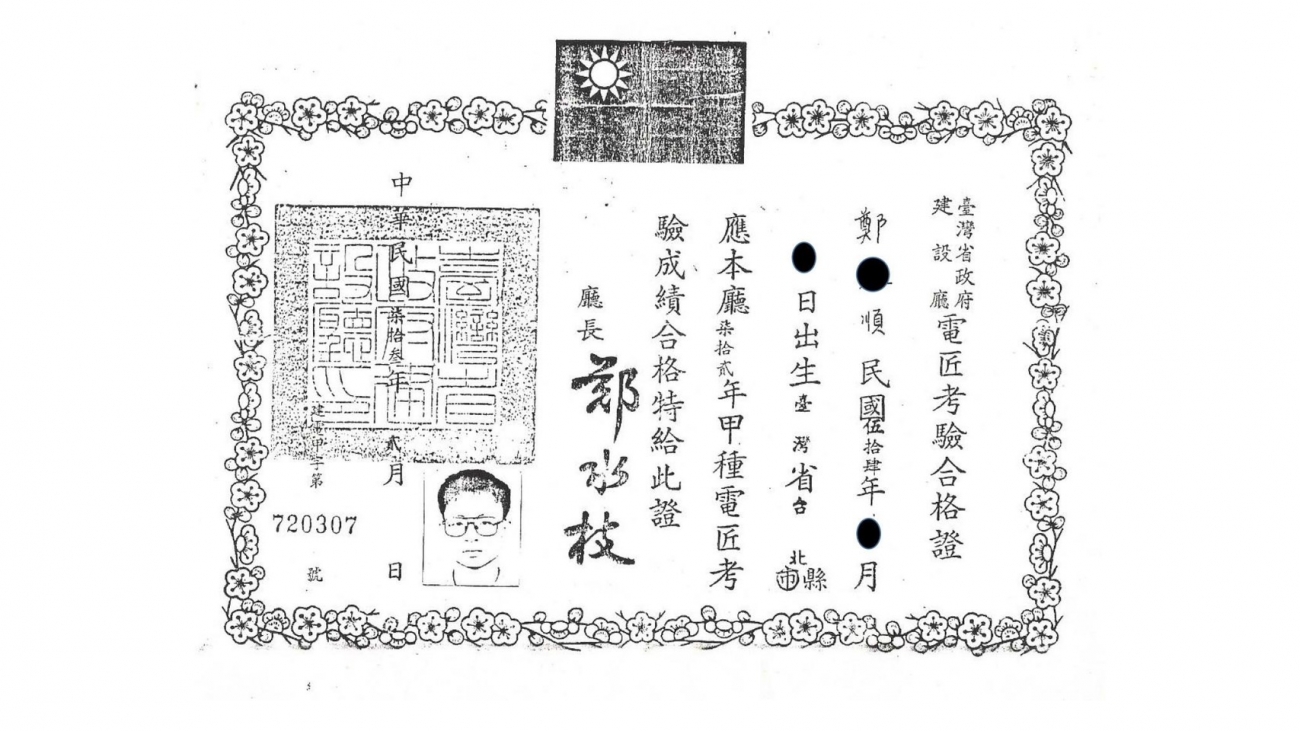 臺灣省政府
建設廳
電匠考驗合格證
鄭 順 民國伍拾肆年 月
日出生臺灣省台北縣市
應本廳柒拾貳年甲種電匠考
驗成績合格特給此證
廳長 鄭水枝
中華民國柒拾叁年貳月 日
字第720307號
臺灣省政府建設廳印